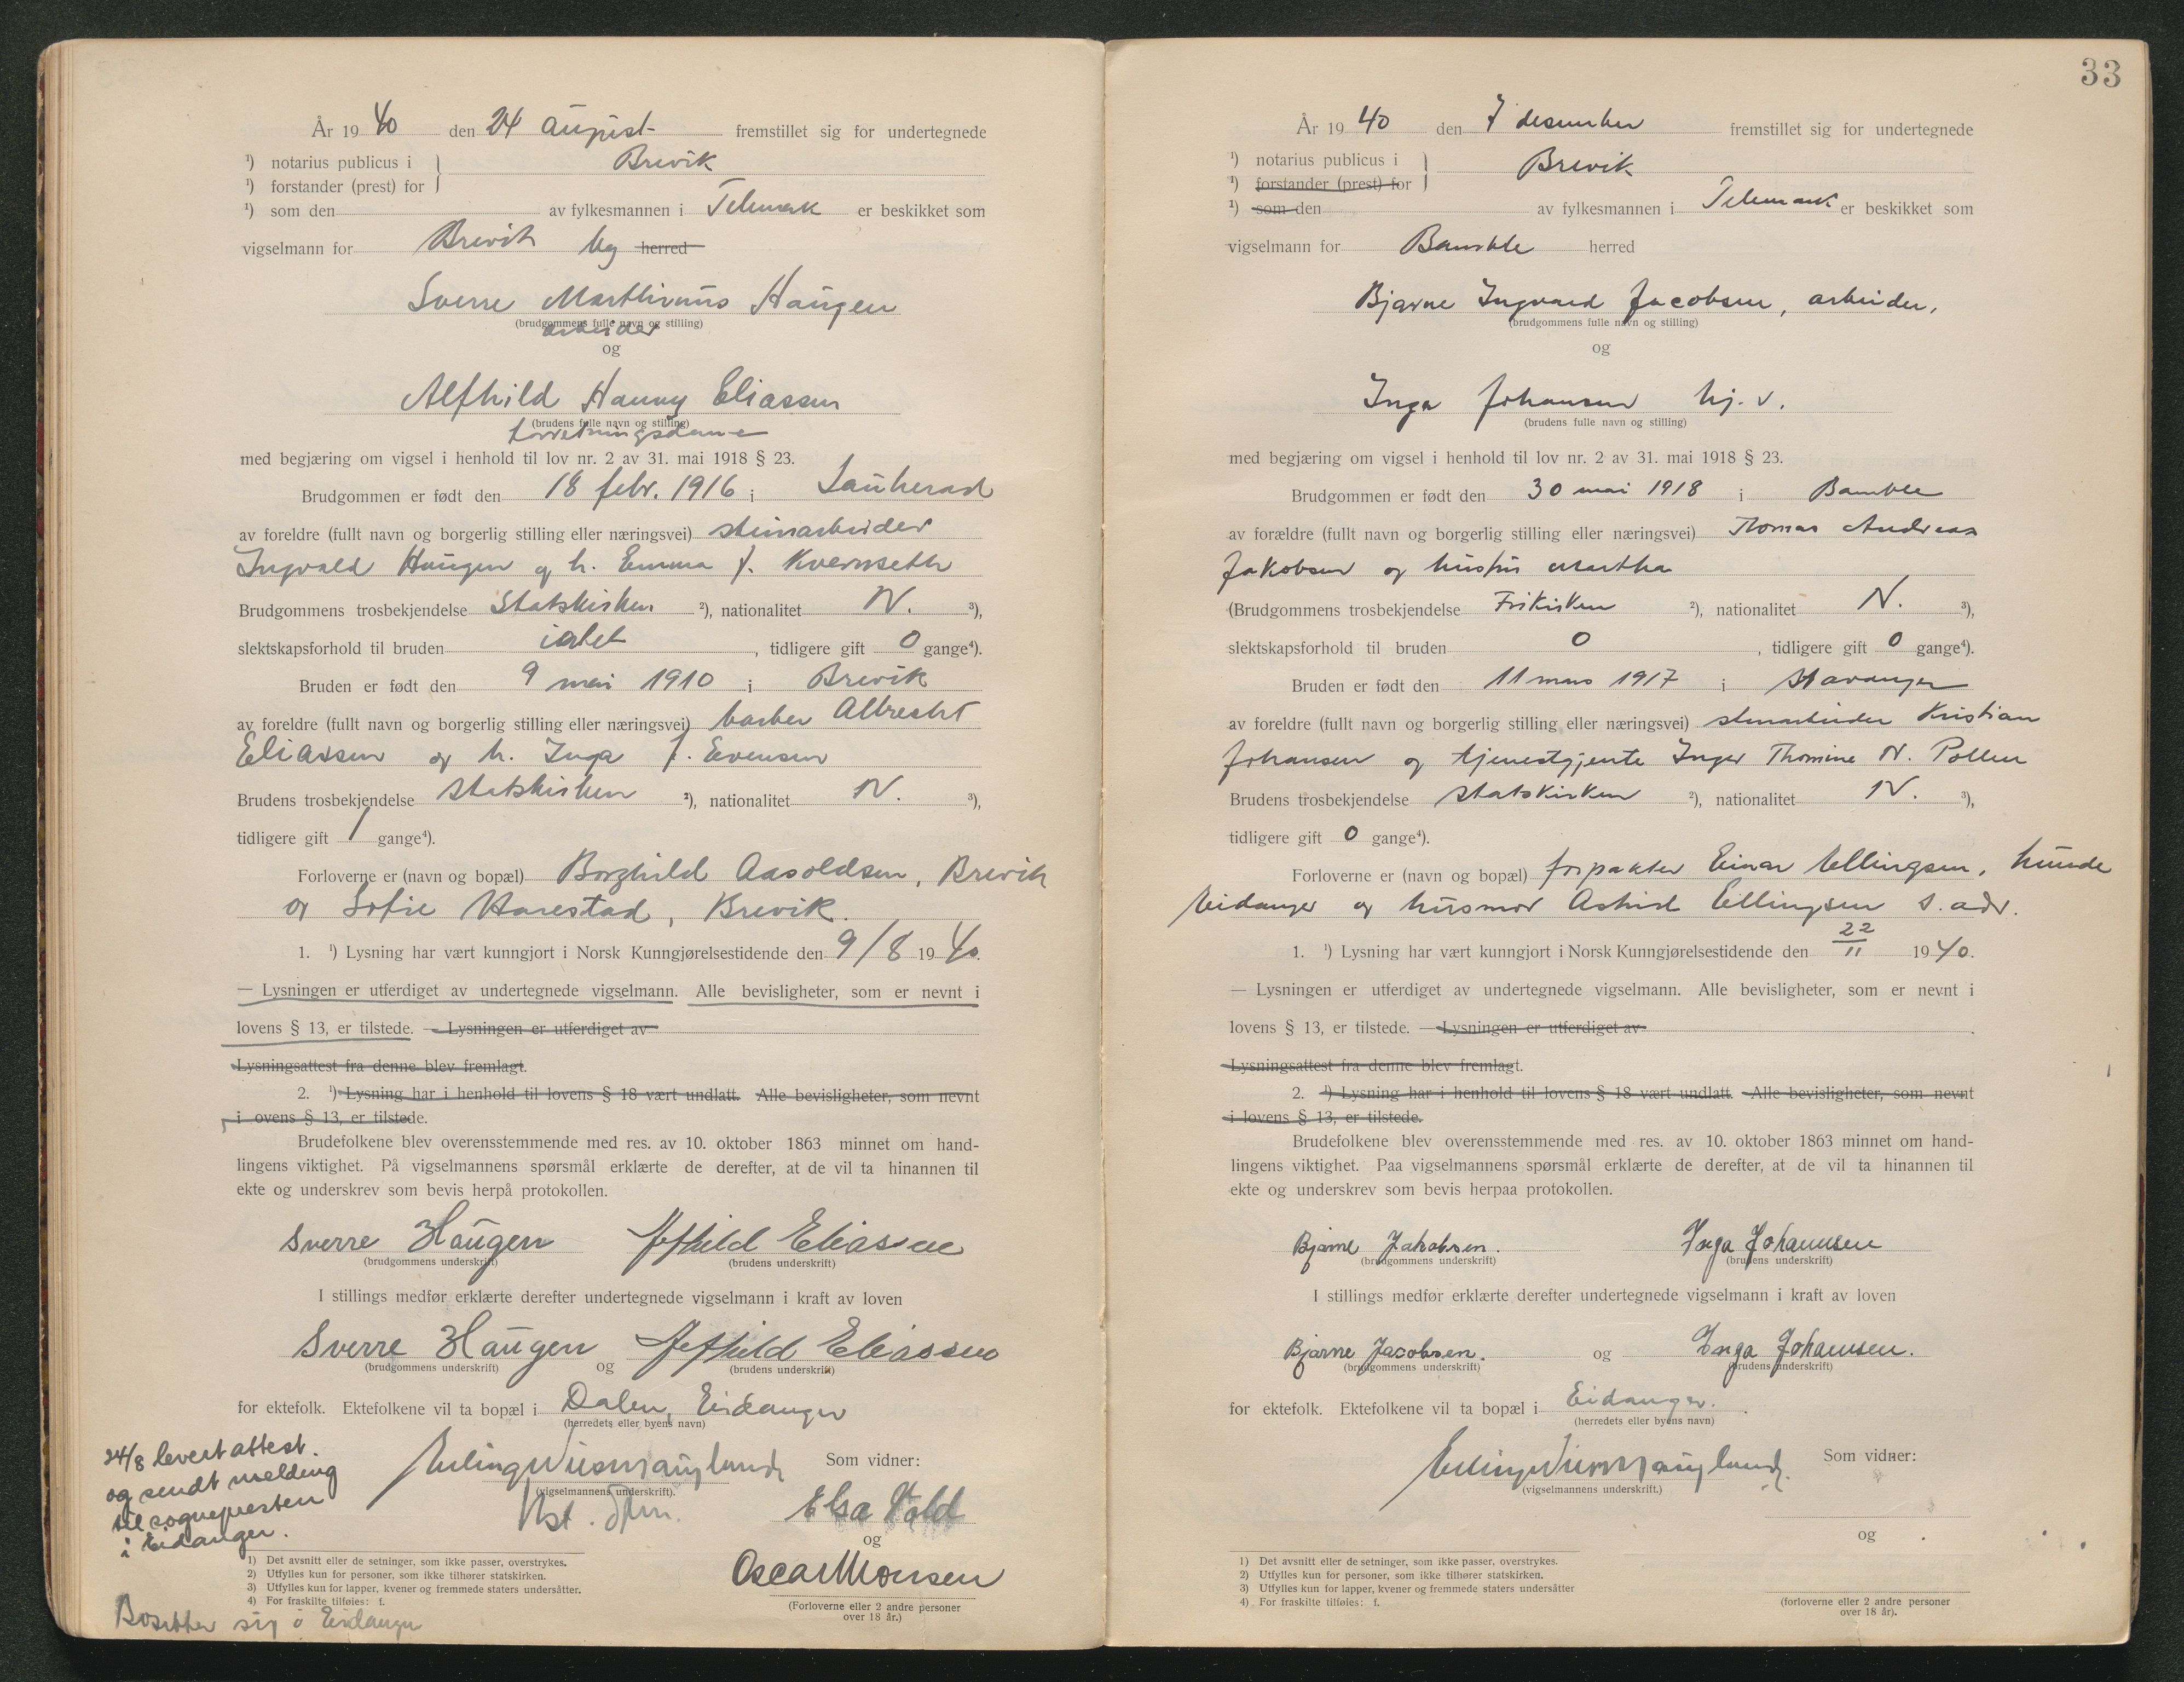 År 1940 den 24 august fremstillet sig for undertegnede
¹) notarius publicus i
Brevik
¹) forstander (prest) for
¹) som den av fylkesmannen i Telemark er beskikket som
vigselmann for Brevik by herred
Sverre Marthinius Haugen
(brudgommens fulle navn og stilling)
arbeider
og
Alfhild Hanny Eliassen
(brudens fulle navn og stilling)
forretningsdame
med begjæring om vigsel i henhold til lov nr. 2 av 31. mai 1918 § 23.
Brudgommen er født den 18 febr. 1916 i Sauherad
av foreldre (fullt navn og borgerlig stilling eller næringsvei) steinarbeider
Ingvald Haugen og h. Emma f. Kvernseth
Brudgommens trosbekjendelse Statskirken ²), nationalitet N. ³),
slektskapsforhold til bruden intet, tidligere gift 0 gange⁴).
Bruden er født den 9 mai 1910 i Brevik
av foreldre (fullt navn og borgerlig stilling eller næringsvei) barber Albrecht
Eliassen og h. Inga f. Evensen
Brudens trosbekjendelse Statskirken ²), nationalitet N. ³),
tidligere gift 1 gange⁴).
Forloverne er (navn og bopæl) Borghild Aasoldsen, Brevik
og Sofie Harestad, Brevik.
1. ¹) Lysning har vært kunngjort i Norsk Kunngjørelsestidende den 9/8 1940.
— Lysningen er utferdiget av undertegnede vigselmann. Alle bevisligheter, som er nevnt i
lovens § 13, er tilstede. — Lysningen er utferdiget av
Lysningsattest fra denne blev fremlagt.
2. ¹) Lysning har i henhold til lovens § 18 vært undlatt. Alle bevisligheter, som nevnt
i ovens § 13, er tilstede.
Brudefolkene blev overensstemmende med res. av 10. oktober 1863 minnet om hand-
lingens viktighet. På vigselmannens spørsmål erklærte de derefter, at de vil ta hinannen til
ekte og underskrev som bevis herpå protokollen.
Sverre Haugen Alfhild Eliassen
(brudgommens underskrift) (brudens underskrift)
I stillings medfør erklærte derefter undertegnede vigselmann i kraft av loven
Sverre Haugen og Alfhild Eliassen
(brudgommens underskrift) (brudens underskrift)
for ektefolk. Ektefolkene vil ta bopæl i Dalen, Eidanger
(herredets eller byens navn)
24/8 levert attest
og sendt melding
til sognepresten
i Eidanger.
Som vidner:
(vigselmannens underskrift).
Elsa Vold
og
Oscar Monsen
(Forloverne eller 2 andre personer
over 18 år.)
1) Det avsnitt eller de setninger, som ikke passer, overstrykes.
2) Utfylles kun for personer, som ikke tilhører statskirken.
3) Utfylles kun for lapper, kvener og fremmede staters undersåtter.
4) For fraskilte tilføies: f.
Bosetter sig i Eidanger
33
År 1940 den 7 desember fremstillet sig for undertegnede
¹) notarius publicus i
Brevik
¹) forstander (prest) for
¹) som den av fylkesmannen i Telemark er beskikket som
vigselmann for Bamble herred
Bjarne Ingvard Jacobsen, arbeider,
(brudgommens fulle navn og stilling)
og
Inga Johansen hj. v.
(brudens fulle navn og stilling)
med begjæring om vigsel i henhold til lov nr. 2 av 31. mai 1918 § 23.
Brudgommen er født den 30 mai 1918 i Bamble
av forældre (fullt navn og borgerlig stilling eller næringsvei) Thomas Andreas
Jakobsen og hustru Martha
(Brudgommens trosbekjendelse Frikirken ²), nationalitet N. ³),
slektskapsforhold til bruden 0, tidligere gift 0 gange⁴).
Bruden er født den 11 mars 1917 i Stavanger
av foreldre (fullt navn og borgerlig stilling eller næringsvei) stenarbeider Kristian
Johansen og tjenestgjente Inger Thomine N. Pollen
Brudens trosbekjendelse Statskirken ²), nationalitet N. ³),
tidligere gift 0 gange⁴).
Forloverne er (navn og bopæl) forpakter Einar Ellingsen,
Eidanger og husmor Astrid Ellingsen s. adr.
1. ¹) Lysning har vært kunngjort i Norsk Kunngjørelsestidende den 22/11 1940.
— Lysningen er utferdiget av undertegnede vigselmann. Alle bevisligheter, som er nevnt i
lovens § 13, er tilstede. — Lysningen er utferdiget av
Lysningsattest fra denne blev fremlagt.
2. ¹) Lysning har i henhold til lovens § 18 vært undlatt. Alle bevisligheter, som nevnt
i lovens § 13, er tilstede.
Brudefolkene blev overensstemmende med res. av 10. oktober 1863 minnet om hand-
lingens viktighet. Paa vigselmannens spørsmål erklærte de derefter, at de vil ta hinannen til
ekte og underskrev som bevis herpaa protokollen.
Bjarne Jakobsen. Inga Johannsen
(brudgommens underskrift) (brudens underskrift)
I stillings medfør erklærte derefter undertegnede vigselmann i kraft av loven
Bjarne Jacobsen. og Inga Johansen.
(brudgommens underskrift) (brudens underskrift)
for ektefolk. Ektefolkene vil ta bopæl i Eidanger.
(herredets eller byens navn)
Som vidner:
(vigselmannens underskrift.)
og
1) Det avsnitt eller de setninger, som ikke passer, overstrykes.
2) Utfylles kun for personer, som ikke tilhører statskirken.
3) Utfylles kun for lapper, kvener og fremmede staters undersåtter
4) For fraskilte tilføies: f.
(forloverne eller 2 andre personer
over 18 år).